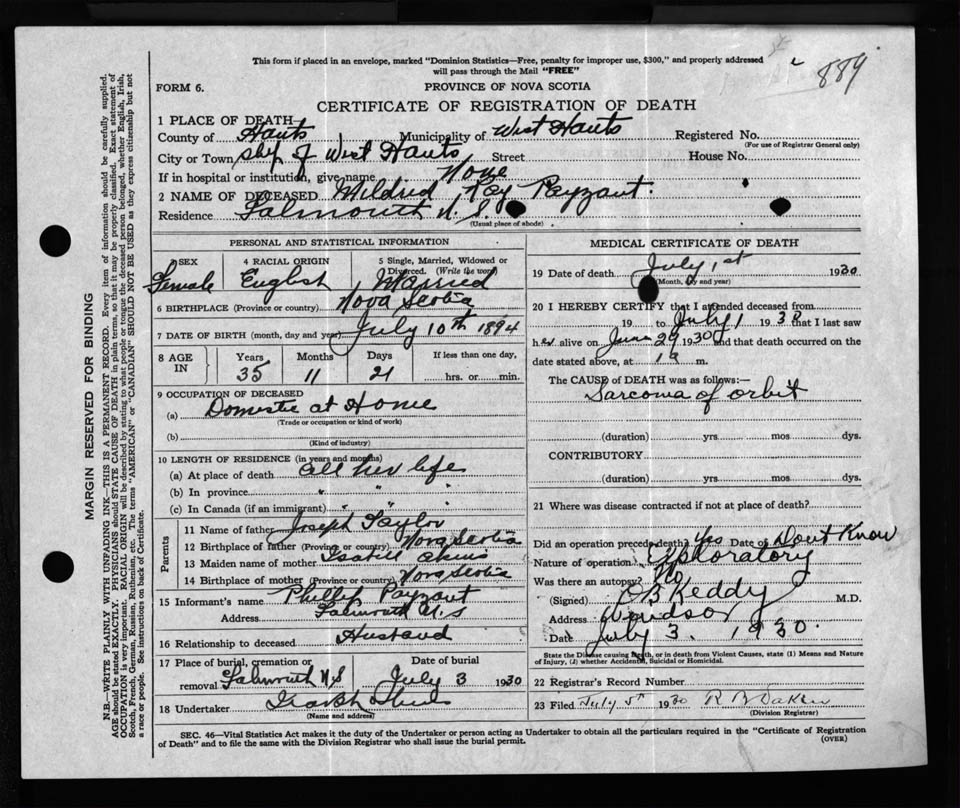 This form if placed in an envelope, marked "Dominion Statistics—Free, penalty for improper use, $300," and properly addressed
will pass through the Mail "FREE"
889
FORM 6.
PROVINCE OF NOVA SCOTIA
CERTIFICATE OF REGISTRATION OF DEATH
1 PLACE OF DEATH
County of Hants Municipality of West Hants Registered No.
(For use of Registrar General only)
City or Town/ship of West Hants Street House No.
If in hospital or institution, give name None
2 NAME OF DECEASED Mildred Ray Payzant
Residence Falmouth N.S.
(Usual place of abode)
PERSONAL AND STATISTICAL INFORMATION
SEX 4 RACIAL ORIGIN 5 Single, Married, Widowed or
Divorced. (Write the word)
Female English Married
6 BIRTHPLACE (Province or country) Nova Scotia
7 DATE OF BIRTH (month, day and year) July 10th 1894
8 AGE IN Years Months Days If less than one day,
35 11 21 hrs. or min.
9 OCCUPATION OF DECEASED
(a) Domestic at Home
(Trade or occupation or kind of work)
(b)
(Kind of industry)
10 LENGTH OF RESIDENCE (in years and months)
(a) At place of death all her life
(b) In province " " "
(c) In Canada (if an immigrant) " " "
Parents
11 Name of father Joseph Taylor
12 Birthplace of father (Province or country) Nova Scotia
13 Maiden name of mother Isabel
14 Birthplace of mother (Province or country) Nova Scotia
15 Informant's name Phillip Payzant
Address Falmouth N.S
16 Relationship to deceased Husband
17 Place of burial, cremation or Date of burial
removal Falmouth N.S July 3 1930
18 Undertaker
(Name and address)
MEDICAL CERTIFICATE OF DEATH
19 Date of death July 1st 1930
(Month, day and year)
20 I HEREBY CERTIFY that I attended deceased from
19 to July 1 1930 that I last saw
her alive on June 29 1930 and that death occurred on the
date stated above, at m.
The CAUSE of DEATH was as follows:—
Sarcoma of orbit
(duration) yrs mos dys.
CONTRIBUTORY
(duration) yrs. mos. dys.
21 Where was disease contracted if not at place of death?
Did an operation precede death? Yes Date of Don't Know
Nature of operation? Exploratory
Was there an autopsy? No
(Signed) O B Keddy M.D.
Address Windsor
Date July 3. 1930.
State the Disease causing Death, or in death from Violent Causes, state (1) Means and Nature
of Injury, (2) whether Accidental, Suicidal or Homicidal.
22 Registrar's Record Number
23 Filed July 5th 1930 R B Dakin
(Division Registrar)
SEC. 46—Vital Statistics Act makes it the duty of the Undertaker or person acting as Undertaker to obtain all the particulars required in the "Certificate of Registration
of Death" and to file the same with the Division Registrar who shall issue the burial permit. (OVER)
MARGIN RESERVED FOR BINDING
N.B.—WRITE PLAINLY WITH UNFADING INK—THIS IS A PERMANENT RECORD. Every item of information should be carefully supplied.
AGE should be stated EXACTLY. PHYSICIANS should STATE CAUSE OF DEATH in plain terms, so that it may be properly classified. Exact statement of
OCCUPATION is very important. RACIAL ORIGIN will be described by stating to what people or tongue the deceased person belonged, whether English, Irish,
Scotch, French, German, Russian, Ruthenian, etc. The terms "AMERICAN" or "CANADIAN" SHOULD NOT BE USED as they express citizenship but not
a race or people. See instructions on back of Certificate.